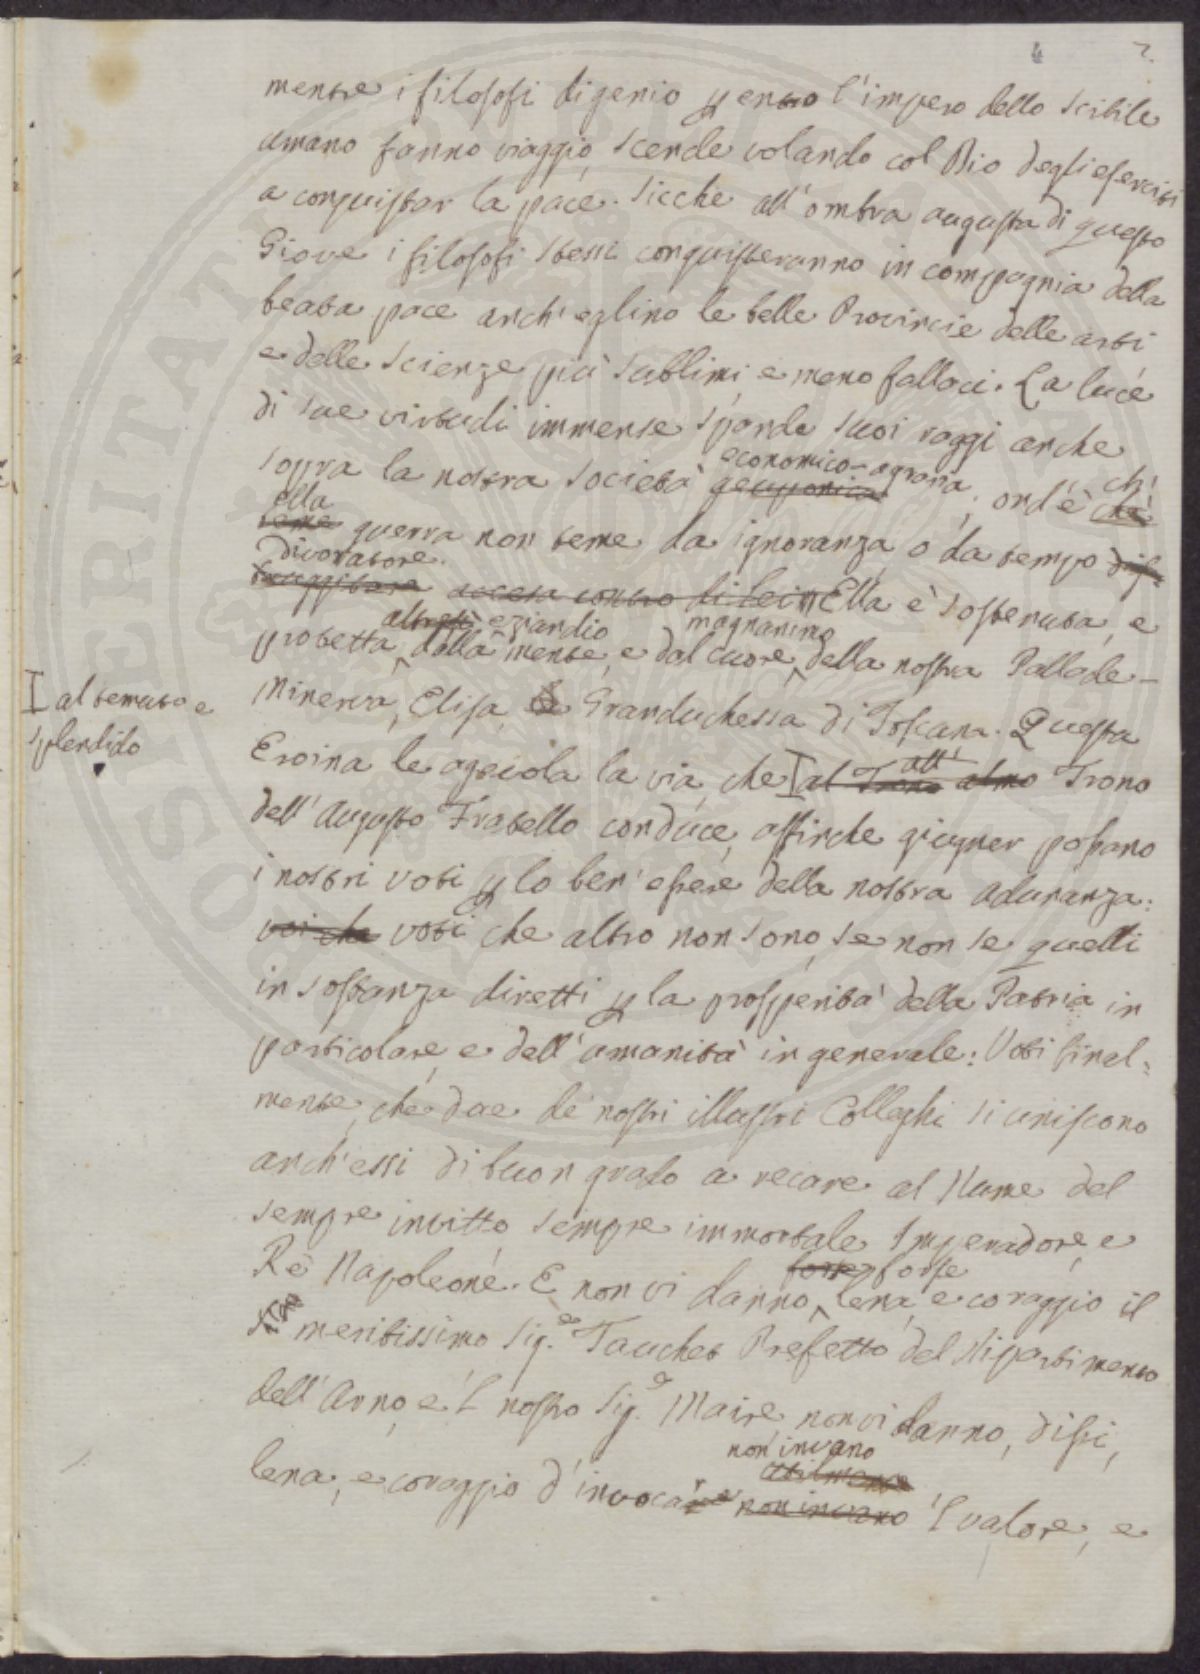 7.
mentre i filosofi di genio p entro l'impero dello scibile
umano fanno viaggio, scende volando col Dio degli eserciti
a conquistar la pace. Sicche all'ombra augusta di questo
Giove i filosofi stessi conquisteranno in compagnia della
beata pace anch'eglino le belle Provincie delle arti
e delle scienze più sublimi e meno fallaci. La luce
di sue virtudi immense spande suoi raggi anche
economico-agraria ch'
sopra la nostra società geuponica, ond'è che
ella
teme guerra non teme da ignoranza, o da tempo dis
divoratore.
struggitore accesa contro di lei Ella è sostenuta, e
altresì eziandio magnanimo
protetta, dalla mente, e dal cuore, della nostra Pallade-
Minerva, Elisa, Granduchessa di Toscana. Questa
I al temuto e
splendido
all'
Eroina le agevola la via, che I al Trono almo Trono
dell'Augusto Fratello conduce, affinche giugner possano
i nostri voti p lo ben'essere della nostra adunanza:
voi che voti che altro non sono, se non se quelli
in sostanza diretti p la prosperità della Patria in
particolare, e dell'umanità in generale: Voti final-
mente, che due de' nostri illustri Colleghi si uniscono
anch'essi di buon grado a recare al Nume del
sempre invitto sempre immortale Imperadore, e
forse forse
Rè Napoleone. E non vi danno, lena, e coraggio il
meritissimo Sig.e Fauchet Prefetto del Dipartimento
dell'Arno, e 'l nostro Sig.e Maire, non vi danno, dissi,
non invano
utilmente
lena, e coraggio d'invocare non invano 'l valore, e
PISTORIENSIS
VERITAT